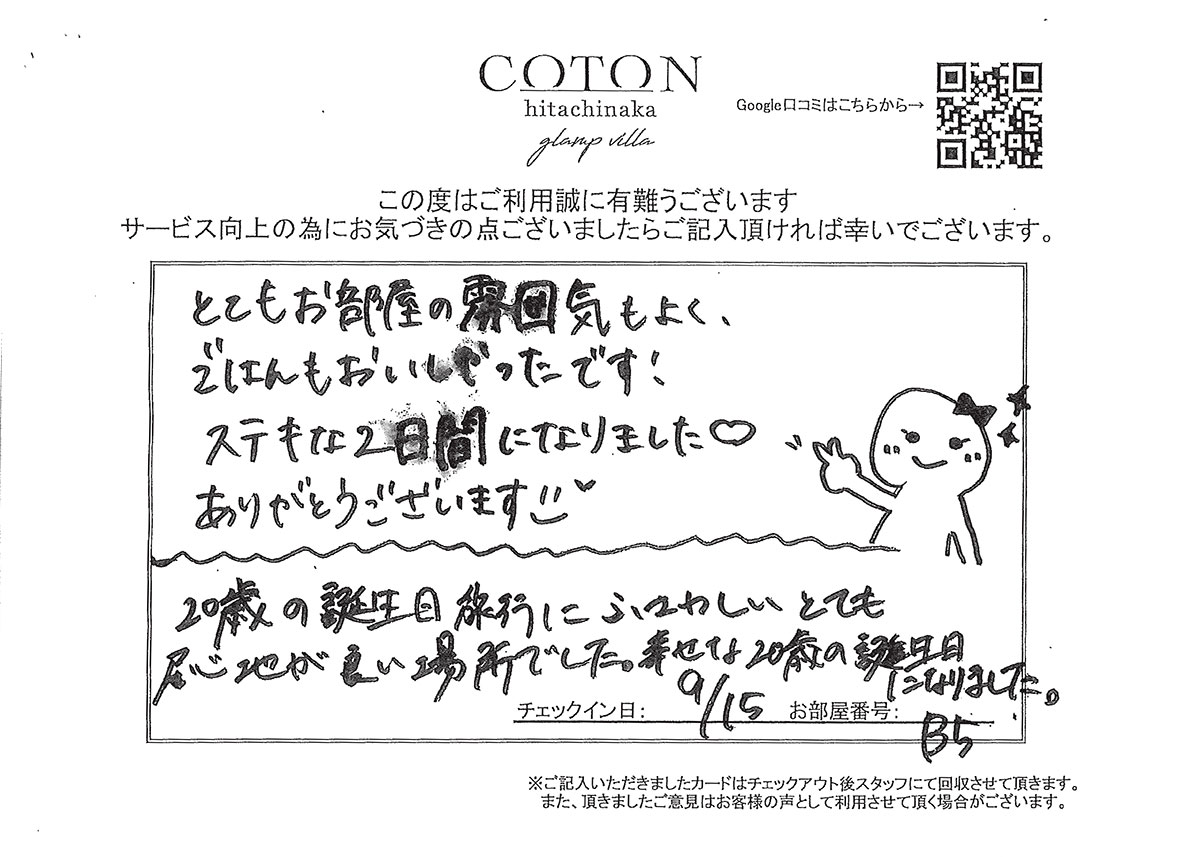 COTON
hitachinaka
glamp villa
Google口コミはこちらから→
この度はご利用誠に有難うございます
サービス向上の為にお気づきの点ございましたらご記入頂ければ幸いでございます。
とてもお部屋の雰囲気もよく、
ごはんもおいしかったです!
ステキな2日間になりました♡
ありがとうございます
20歳の誕生日旅行にふさわしいとても
居心地が良い場所でした。幸せな20歳の誕生日
になりました。
チェックイン日: 9/15 お部屋番号: B5
※ご記入いただきましたカードはチェックアウト後スタッフにて回収させて頂きます。
また、頂きましたご意見はお客様の声として利用させて頂く場合がございます。